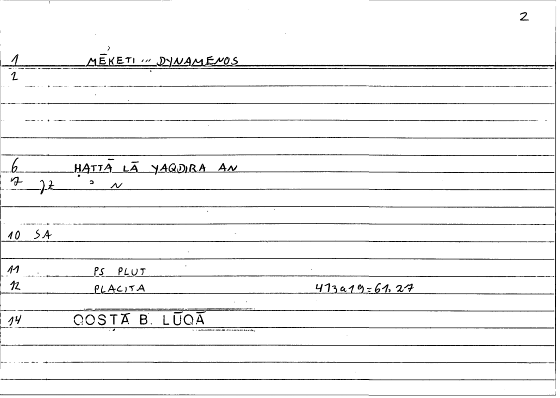 2
1 MĒKETI ... DYNAMENOS
2
6 ḤATTĀ LĀ YAQDIRA AN
7 jz ʾ N
10 SA
11 PS PLUT
12 PLACITA 413a19=61.27
14 QOSṬĀ B. LŪQĀ